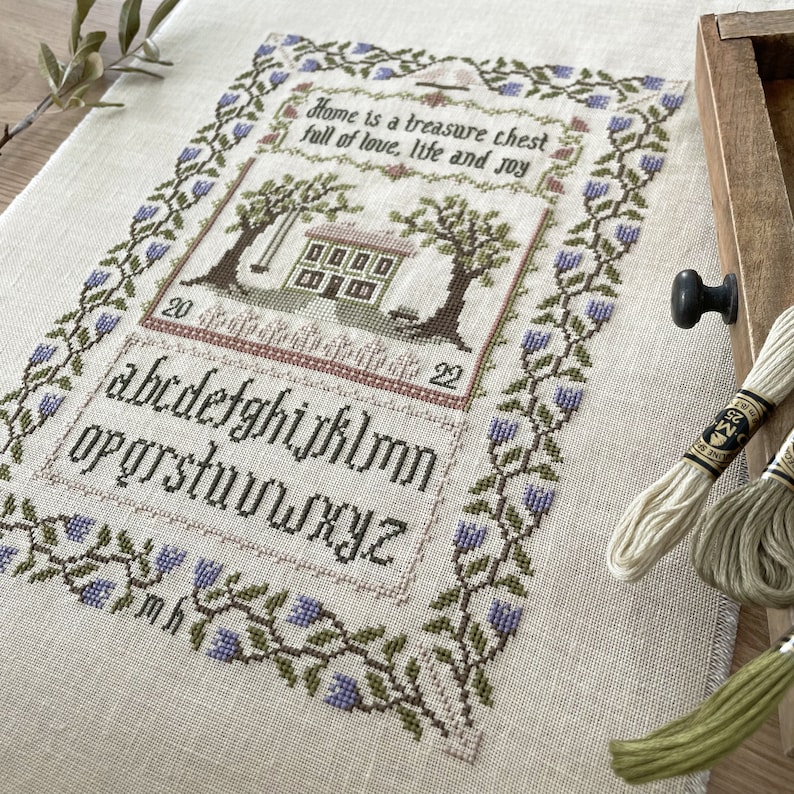 Home is a treasure chest
full of love, life and joy
20
22
abcdefghijklmn
opqrstuvwxyz
mh
DMC
25